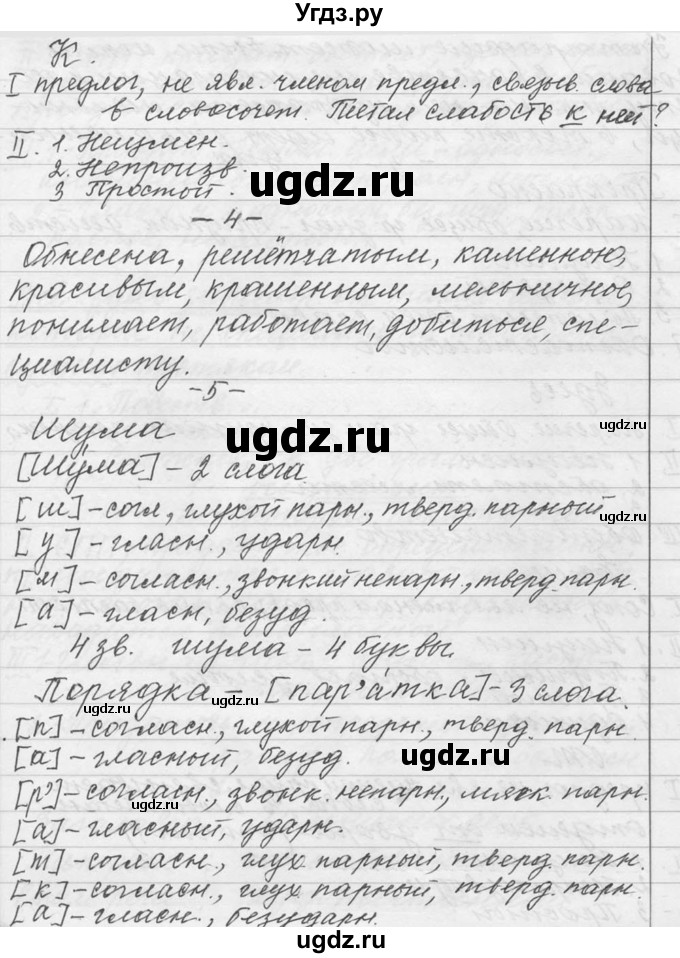 Угдз.ру
К.
I предлог, не явл. членом предл., связыв. слова
в словосочет. Питал слабость к ней?
II. 1. Неизмен.
2. Непроизв.
3 Простой.
ugdz.ru
ugdz.ru
– 4 –
Обнесена, решётчатым, каменною,
красивым, крашенным, мельничное,
понимает, работает, добиться, спе-
циалисту.
ugdz.ru
– 5 –
Шума
ugdz.ru
[Шу́ма] – 2 слога.
[ш] – согл., глухой парн., тверд. парный
ugdz.ru
[у] – гласн., ударн.
[м] – согласн., звонкий непарн., тверд. парн.
[а] – гласн, безуд.
4 зв. шума – 4 буквы.
Порядка – [пар’а́тка] – 3 слога.
ugdz.ru
[п] – согласн., глухой парн., тверд. парн
[а] – гласный, безуд.
ugdz.ru
[р’] – согласн., звонк. непарн., мягк. парн.
ugdz.ru
[а] – гласный, ударн.
[т] – согласн., глух парный, тверд. парн.
[к] – согласн., глух парный, тверд. парн.
ugdz.ru
[а] – гласн., безударн.
ugdz.ru